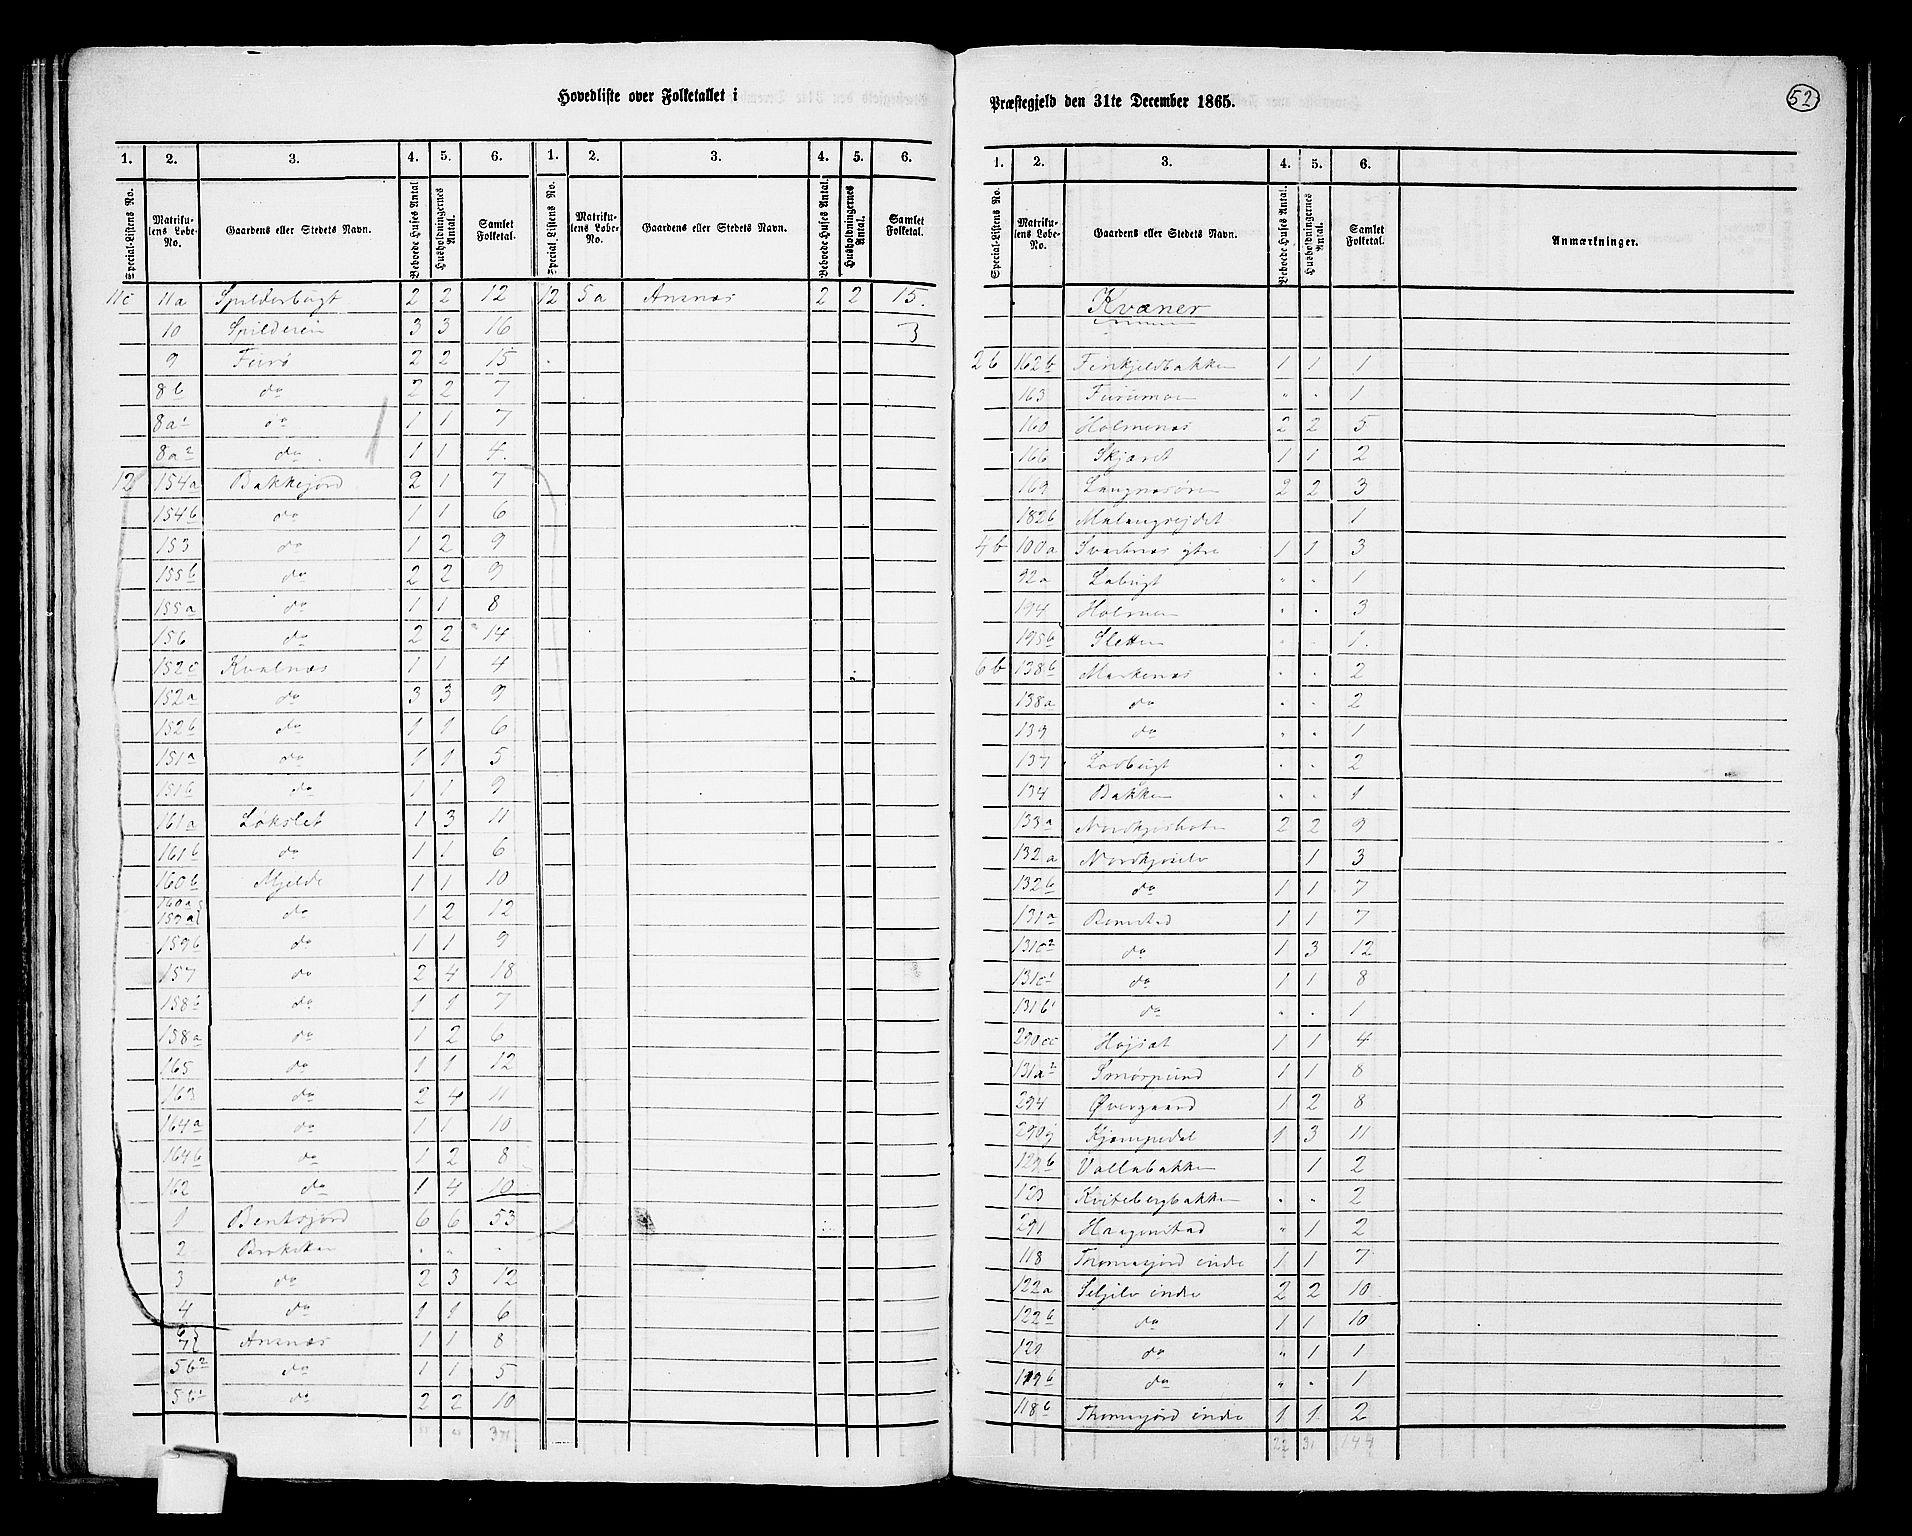 Hovedliste over Folketallet i
1. 2. 3. 4. 5. 6. 1. 2. 3. 4. 5. 6.
Special-Listens No. Matrikulens Løbe-No. Gaardens eller Stedets Navn. Beboede Huses Antal Husholdningernes Antal. Samlet Folketal. Special-Listens No. Matrikulens Løbe-No. Gaardens eller Stedets Navn. Beboede Huses Antal. Husholdningernes Antal. Samlet Folketal.
11c 11a Spilderbugt 2 2 12 12 5a Ansnæs 2 2 15.
10 Spilderein 3 3 16 3
9 Furø 2 2 15
8b do 2 2 7
8a1 do 1 1 7
8a2 do 1 1 4.
12 154a Bakkejord 2 1 7
154b do 1 1 6
153 do 1 2 9
155b do 2 2 9
155a do 1 1 8
156 do 2 2 14
152c Kvalnæs 1 1 4
152a do 3 3 9
152b do 1 1 6
151a do 1 1 5
151b do 1 1 9
161a Løkslet 1 3 11
161b do 1 1 6
160b Mjelde 1 1 10
160a 159a do 1 2 12
159b do 1 1 9
157 do 2 4 18
158b do 1 1 7
158a do 1 2 6
165 do 1 1 12
163 do 2 4 11
164a do 1 1 10
164b do 1 2 8
162 do 1 4 10
1 Bentsjord 6 6 53
2 Brokskar " " "
3 do 2 3 12
4 do 1 1 6
Ansnæs 1 1 8
5b2 do 1 1 5
5b1 do 2 2 10
371
Præstegjeld den 31te December 1865.
52
1. 2. 3. 4. 5. 6.
Special-Listens No. Matrikulens Løbe-No. Gaardens eller Stedets Navn. Beboede Huses Antal. Husholdningernes Antal. Samlet Folketal. Anmærkninger.
Kvæner
2b 162b Finkjeldbakken 1 1 1
163 Furumoe " " 1
160 Holmenæs 2 2 5
166 Skjæret 1 1 2
169 Langnæsøren 2 2 3
182b Malangseidet 1
4b 100a Svartnæs ytre 1 1 3
92a Labugt " " 1
194 Holmen " " 3
195b Sletten " " 1.
6b 138b Markenæs " " 2
138a do " " 2
139 do " " 1
137 Lavbugt " " 2
134 Bakken " " 1
133a Nordkjosboten 2 2 9
132a Nordkjoselv 1 3
132b do 1 1 7
131a Bomstad 1 1 7
131c2 do 1 3 12
131c1 do 1 1 8
131b1 do " " 1
290cc Højsæt 1 1 4
131a2 Smørpund 1 1 8
294 Øvergaard 1 2 8
290j Kjempedal 1 3 11
129b Vollabakken 1 2
123 Kvitebergbakken " " 2
291 Haagenstad " 1 2
118 Thomasjord indre 1 1 7
122a Seljelv indre 2 2 10
122b do 1 1 10
121 do " 1 1
119b do " " 1
118b Thomasjord indre 1 1 2
22 31 144